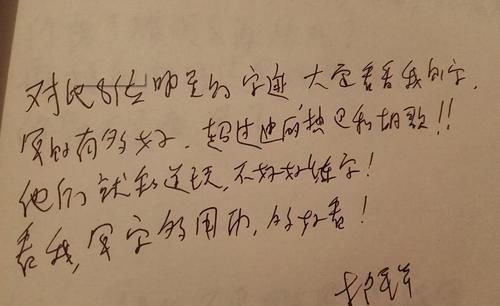 对比8位明星的字迹 大家看看我的字,
写的有多好. 超过迪丽热巴和胡歌!!
他们就爱逞玩,不好好练字!
看我,写字多用功,多好看!